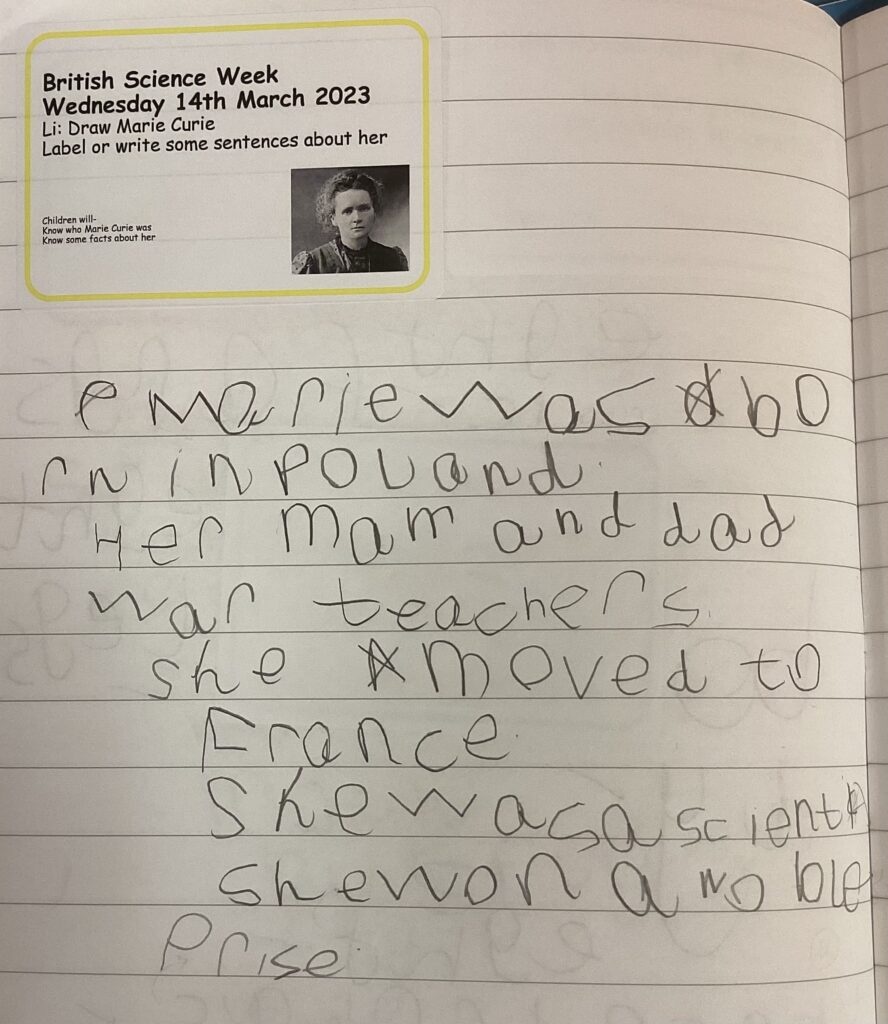 British Science Week
Wednesday 14th March 2023
Li: Draw Marie Curie
Label or write some sentences about her
Children will-
Know who Marie Curie was
Know some facts about her
e Mariewas bo
rn in POLand.
Her Mam and dad
war teachers.
She moved to
France.
Shewasa scient
shewon a noble
Prise.